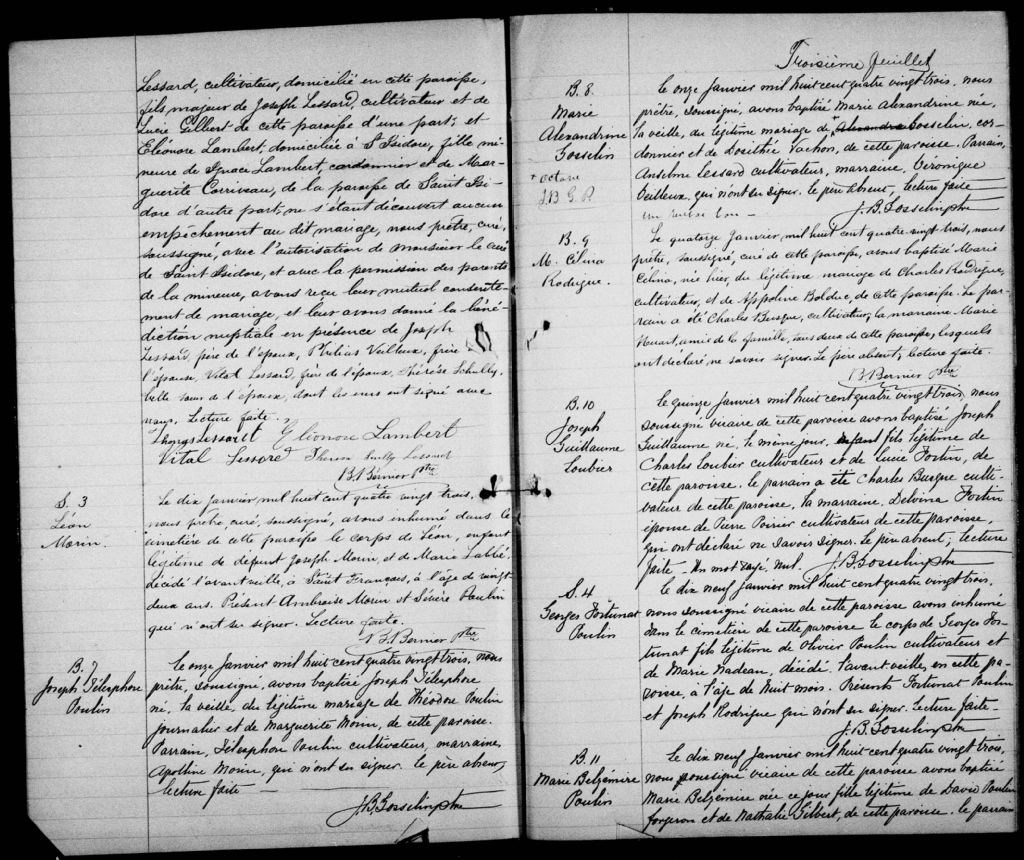 Lessard, cultivateur, domicilié en cette paroisse,
fils majeur de Joseph Lessard, cultivateur et de
Lucie Gilbert de cette paroisse d'une part; et
Eléonore Lambert, domiciliée à St Isidore, fille mi-
neure de Ignace Lambert, cordonnier et de Mar-
guerite Corriveau, de la paroisse de Saint Isi-
dore d'autre part, ne s'étant découvert aucun
empêchement au dit mariage, nous prêtre, curé,
soussigné, avec l'autorisation de monsieur le curé
de Saint Isidore, et avec la permission des parents
de la mineure, avons reçu leur mutuel consente-
ment de mariage, et leur avons donné la béné-
diction nuptiale en présence de Joseph
Lessard, père de l'époux, Philias Veilleux, frère
l'épouse, Vital Lessard, frère de l'époux, Thérèse Schully,
belle soeur de l'époux, dont les uns ont signé avec
nous. Lecture faite.
Lessard Eléonore Lambert
Vital Lessard Lessard
B. Bernier Ptre
S. 3
Léon
Morin.
Le dix Janvier mil huit cent quatre vingt trois,
nous prêtre, curé, soussigné, avons inhumé dans le
cimetière de cette paroisse le corps de Léon, enfant
légitime de défunt Joseph Morin et de Marie Labbé,
décédé l'avant veille, à Saint François, à l'âge de vingt
deux ans. Présent Ambroise Morin et Sévère Poulin
qui n'ont su signer. Lecture faite.
B. Bernier Ptre
B. 7
Joseph Télesphore
Poulin
Le onze Janvier mil huit cent quatre vingt trois, nous
prêtre, soussigné, avons baptisé Joseph Télesphore
né, la veille, du légitime mariage de Théodore Poulin
journalier et de Marguerite Morin, de cette paroisse.
Parrain, Télesphore Poulin cultivateur, marraine,
Apolline Morin, qui n'ont su signer. le père absent,
lecture faite —
J. B. Gosselin ptre
Troisième feuillet
B. 8.
Marie
Alexandrine
Gosselin
+ octave
J. B. G. P.
Le onze Janvier mil huit cent quatre vingt trois, nous
prêtre, soussigné, avons baptisé Marie Alexandrine née,
la veille, du légitime mariage de Gosselin, cor-
donnier et de Dosithée Vachon, de cette paroisse. Parrain,
Anselme Lessard cultivateur, marraine, Véronique
Veilleux, qui n'ont su signer. le père absent, lecture faite
J. B. Gosselin ptre
B. 9
M. Célina
Rodrigue.
Le quatorze Janvier mil huit cent quatre-vingt trois, nous
prêtre, soussigné, curé de cette paroisse, avons baptisé Marie
Célina, née hier, du légitime mariage de Charles Rodrigue,
cultivateur, et de Appoline Bolduc, de cette paroisse. Le par-
rain a été Charles Busque, cultivateur; la marraine Marie
Huart, amie de la famille, tous deux de cette paroisse, lesquels
ont déclaré ne savoir signer. Le père absent; lecture faite.
B. Bernier Ptre
B. 10
Joseph
Guillaume
Loubier
Le quinze Janvier mil huit cent quatre vingt trois, nous
soussigné vicaire de cette paroisse avons baptisé Joseph
Guillaume né, le même jour, enfant fils légitime de
Charles Loubier cultivateur et de Lucie Fortin, de
cette paroisse. le parrain a été Charles Busque culti-
vateur de cette paroisse, la marraine, Delvina Fortin
épouse de Pierre Poirier cultivateur de cette paroisse,
qui ont déclaré ne savoir signer. le père absent; lecture
faite — Un mot rayé, nul. J. B. Gosselin ptre
S. 4
Georges Fortunat
Poulin
Le dix neuf Janvier mil huit cent quatre vingt trois,
nous soussigné vicaire de cette paroisse avons inhumé
dans le cimetière de cette paroisse le corps de Georges For-
tunat fils légitime de Olivier Poulin cultivateur et
de Marie Nadeau, décédé l'avant veille, en cette pa-
roisse, à l'âge de huit mois. Présents Fortunat Poulin
et Joseph Rodrigue qui n'ont su signer. Lecture faite —
J. B. Gosselin ptre
B. 11
Marie Belzémire
Poulin
Le dix neuf Janvier mil huit cent quatre vingt trois,
nous soussigné vicaire de cette paroisse avons baptisé
Marie Belzémire née ce jour fille légitime de David Poulin
forgeron et de Nathalie Gilbert, de cette paroisse. le parrain